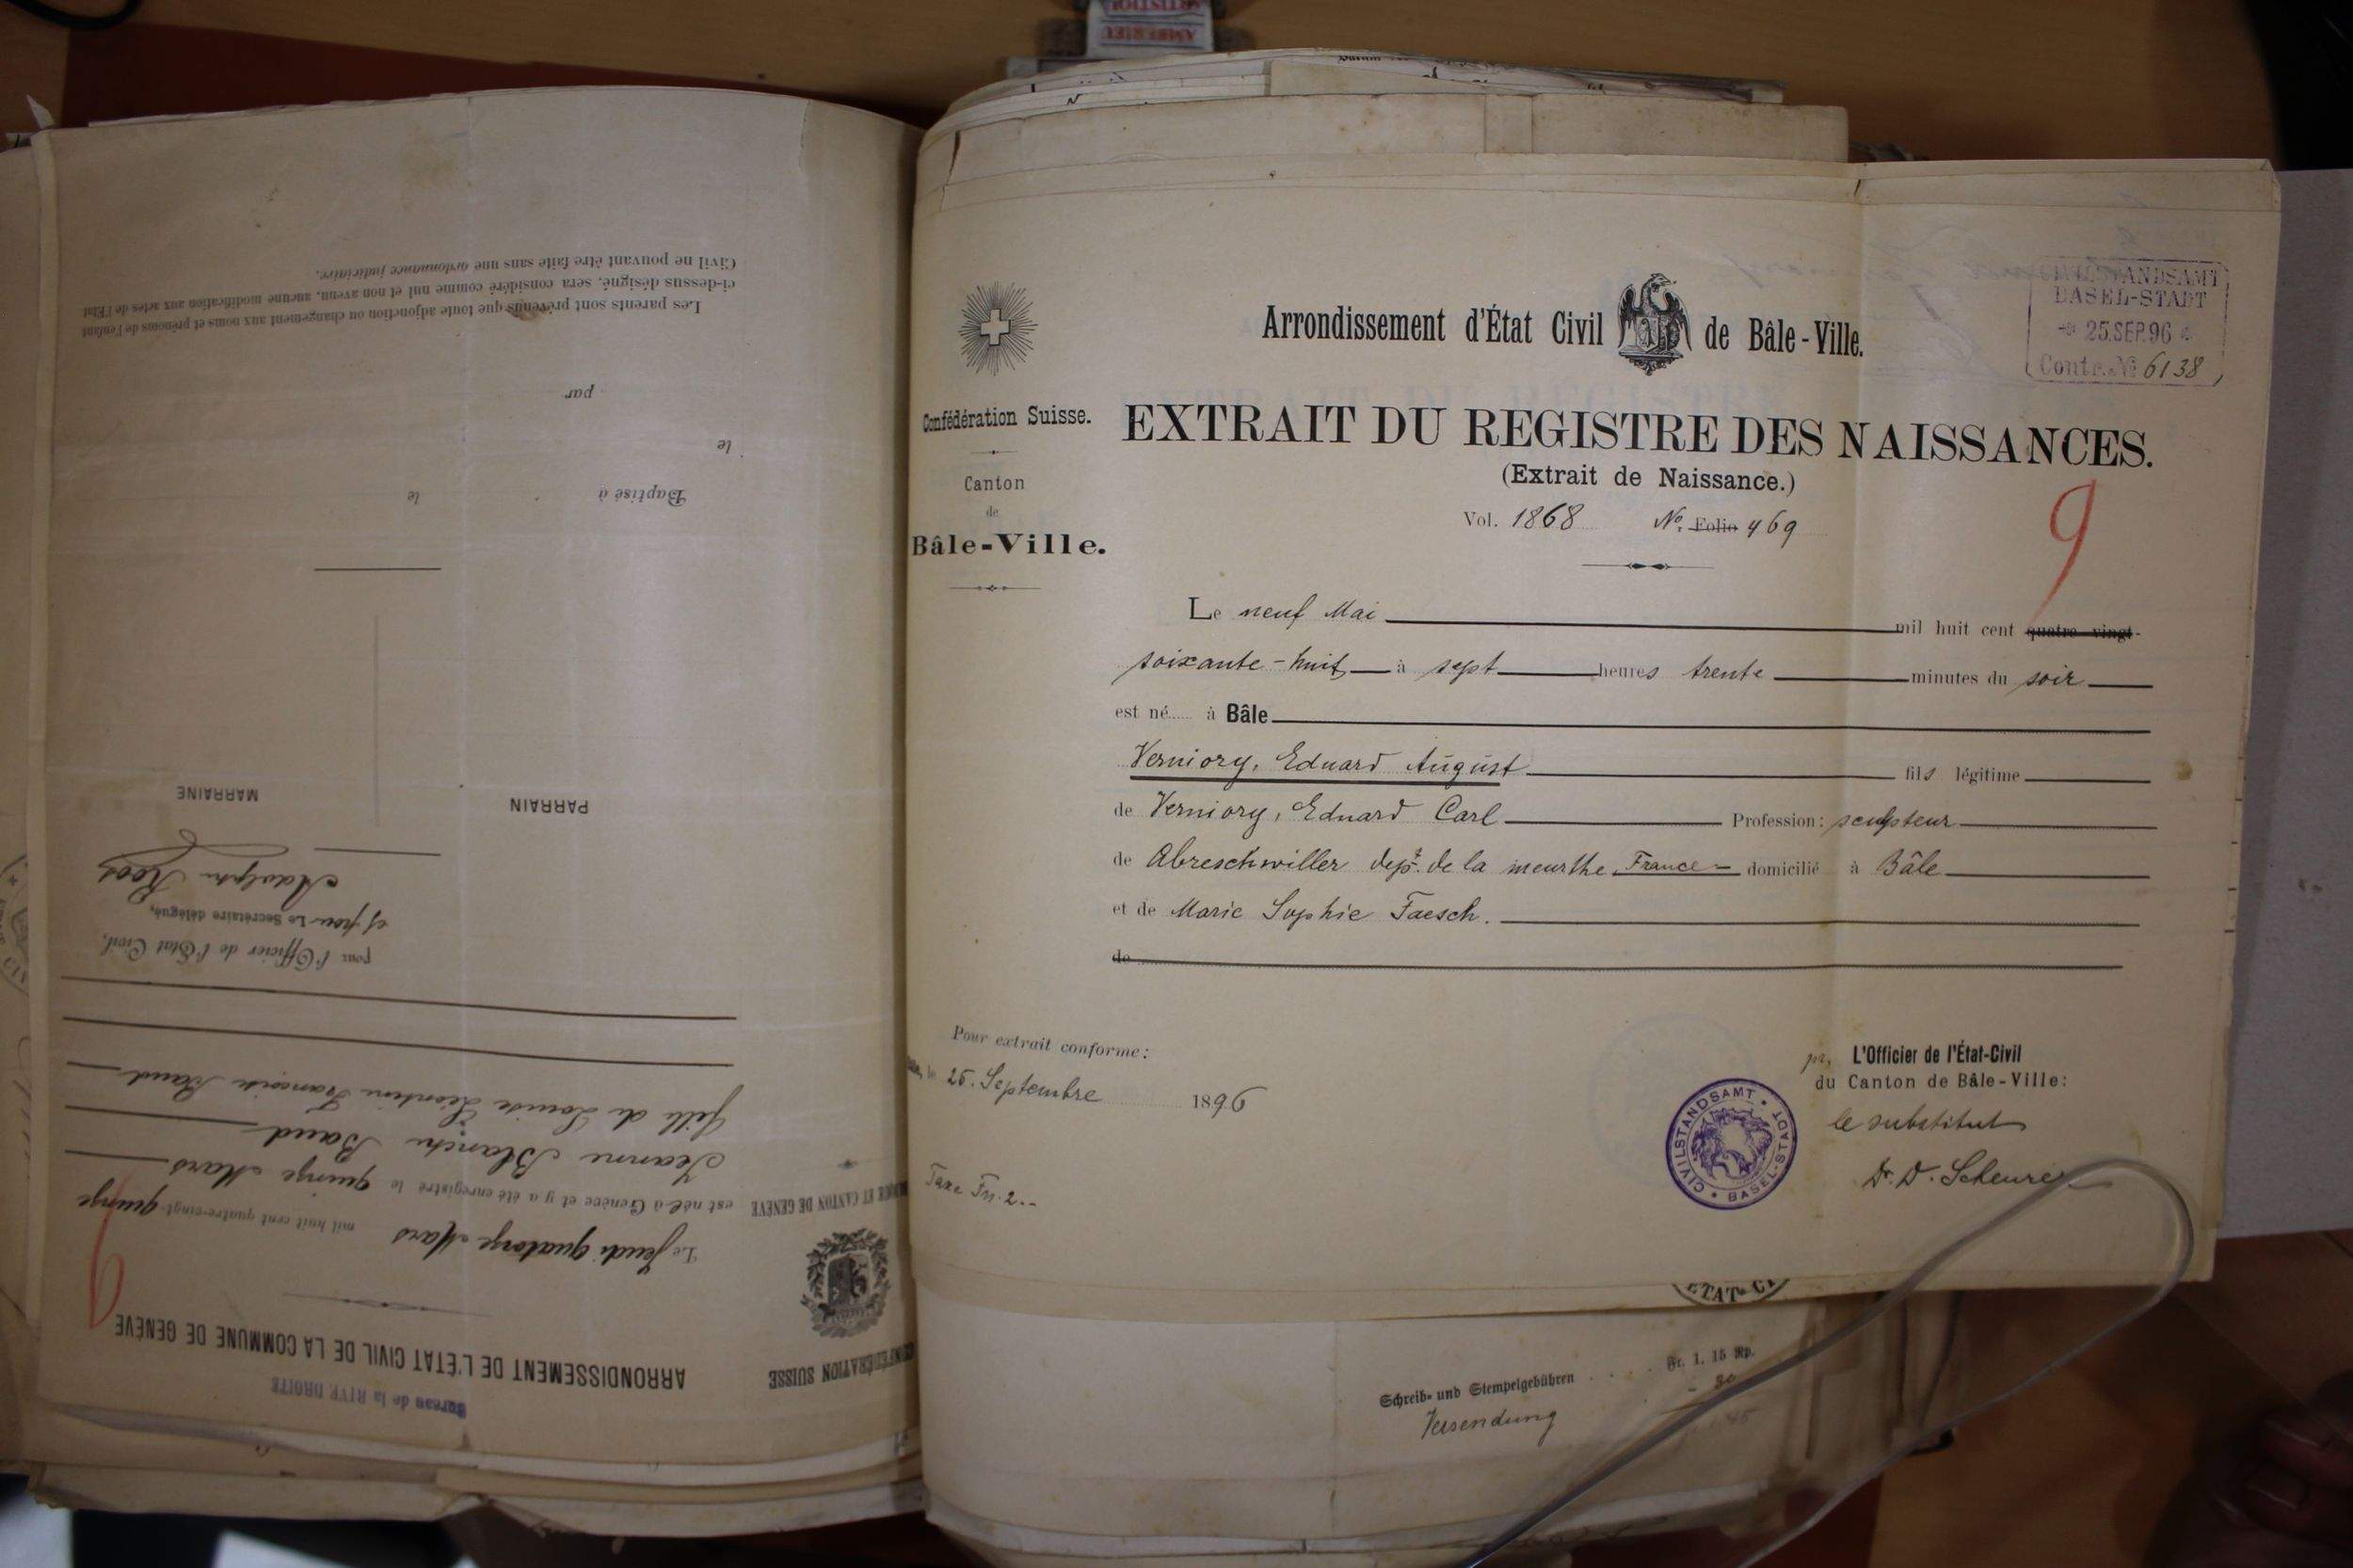 Arrondissement d'État Civil de Bâle-Ville.
CIVILSTANDSAMT
BASEL-STADT
25.SEP.96
Contr. No 6138
Confédération Suisse.
Canton
de
Bâle-Ville.
EXTRAIT DU REGISTRE DES NAISSANCES.
(Extrait de Naissance.)
Vol. 1868 No. Folio 469
9
Le neuf Mai mil huit cent quatre-vingt-
soixante-huit à sept heures trente minutes du soir
est né à Bâle
Verniory, Eduard August fils légitime
de Verniory, Eduard Carl Profession: sculpteur
de Abreschwiller dept. de la meurthe, France domicilié à Bâle
et de Marie Sophie Faesch.
de
Pour extrait conforme:
le 25. Septembre 1896
Taxe Fr. 2.--
pr. L'Officier de l'État-Civil
du Canton de Bâle-Ville:
le substitut
Dr. D. Scheurer
CIVILSTANDSAMT • BASEL-STADT •
ETAT-CI
Schreib- und Stempelgebühren . . . . Fr. 1. 15 Rp.
Versendung
Bureau de la RIVE DROITE
ARRONDISSEMENT DE L'ÉTAT CIVIL DE LA COMMUNE DE GENÈVE
CONFÉDÉRATION SUISSE
ET CANTON DE GENÈVE
Le jeudi quatorze Mars mil huit cent quatre-vingt-quinze
est née à Genève et y a été enregistré le quinze Mars
Jeanne Blanche Baud
fille de Louise Léontine Françoise Baud
pour l'Officier de l'Etat Civil,
Le Secrétaire délégué,
Adolph Roos
PARRAIN
MARRAINE
Baptisé à le
le
par
Les parents sont prévenus que toute adjonction ou changement aux noms et prénoms de l'enfant
ci-dessus désigné, sera considéré comme nul et non avenu, aucune modification aux actes de l'Etat
Civil ne pouvant être faite sans une ordonnance judiciaire.